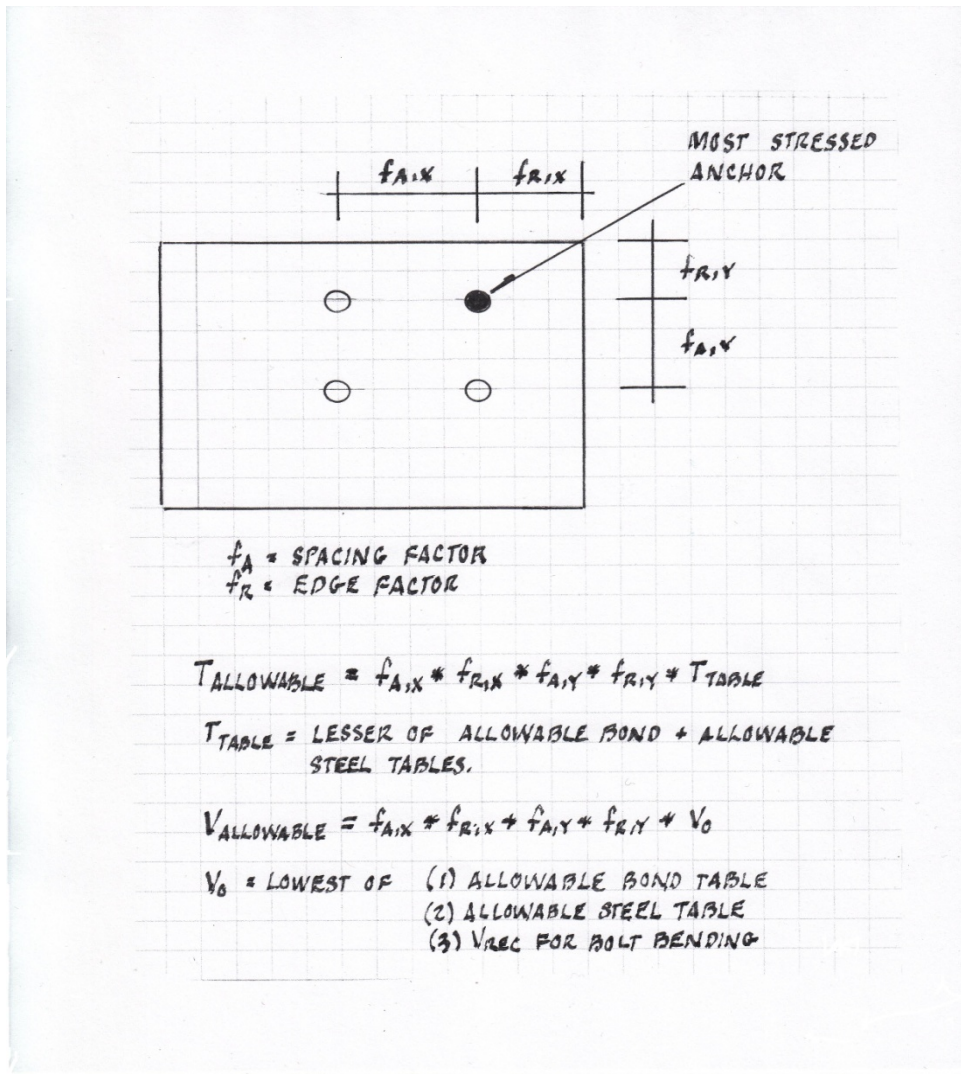 MOST STRESSED
ANCHOR
fA,X fR,X
fR,Y
fA,Y
fA = SPACING FACTOR
fR = EDGE FACTOR
TALLOWABLE = fA,X * fR,X * fA,Y * fR,Y * TTABLE
TTABLE = LESSER OF ALLOWABLE BOND + ALLOWABLE
STEEL TABLES.
VALLOWABLE = fA,X * fR,X * fA,Y * fR,Y * V0
V0 = LOWEST OF (1) ALLOWABLE BOND TABLE
(2) ALLOWABLE STEEL TABLE
(3) VREC FOR BOLT BENDING